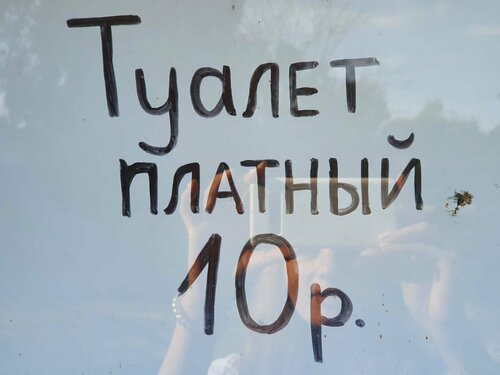 Туалет
платный
10р.